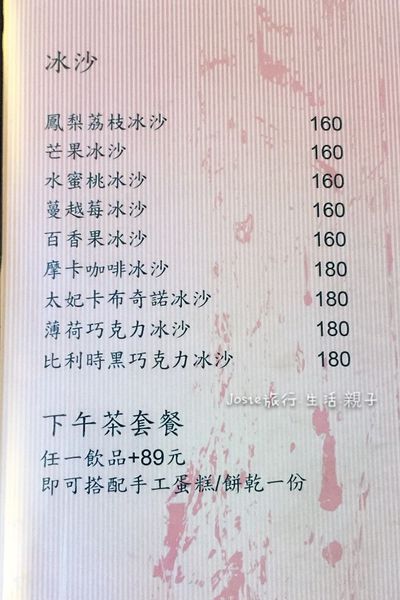 冰沙
鳳梨荔枝冰沙 160
芒果冰沙 160
水蜜桃冰沙 160
蔓越莓冰沙 160
百香果冰沙 160
摩卡咖啡冰沙 180
太妃卡布奇諾冰沙 180
薄荷巧克力冰沙 180
比利時黑巧克力冰沙 180
Josie旅行 生活 親子
下午茶套餐
任一飲品+89元
即可搭配手工蛋糕/餅乾一份